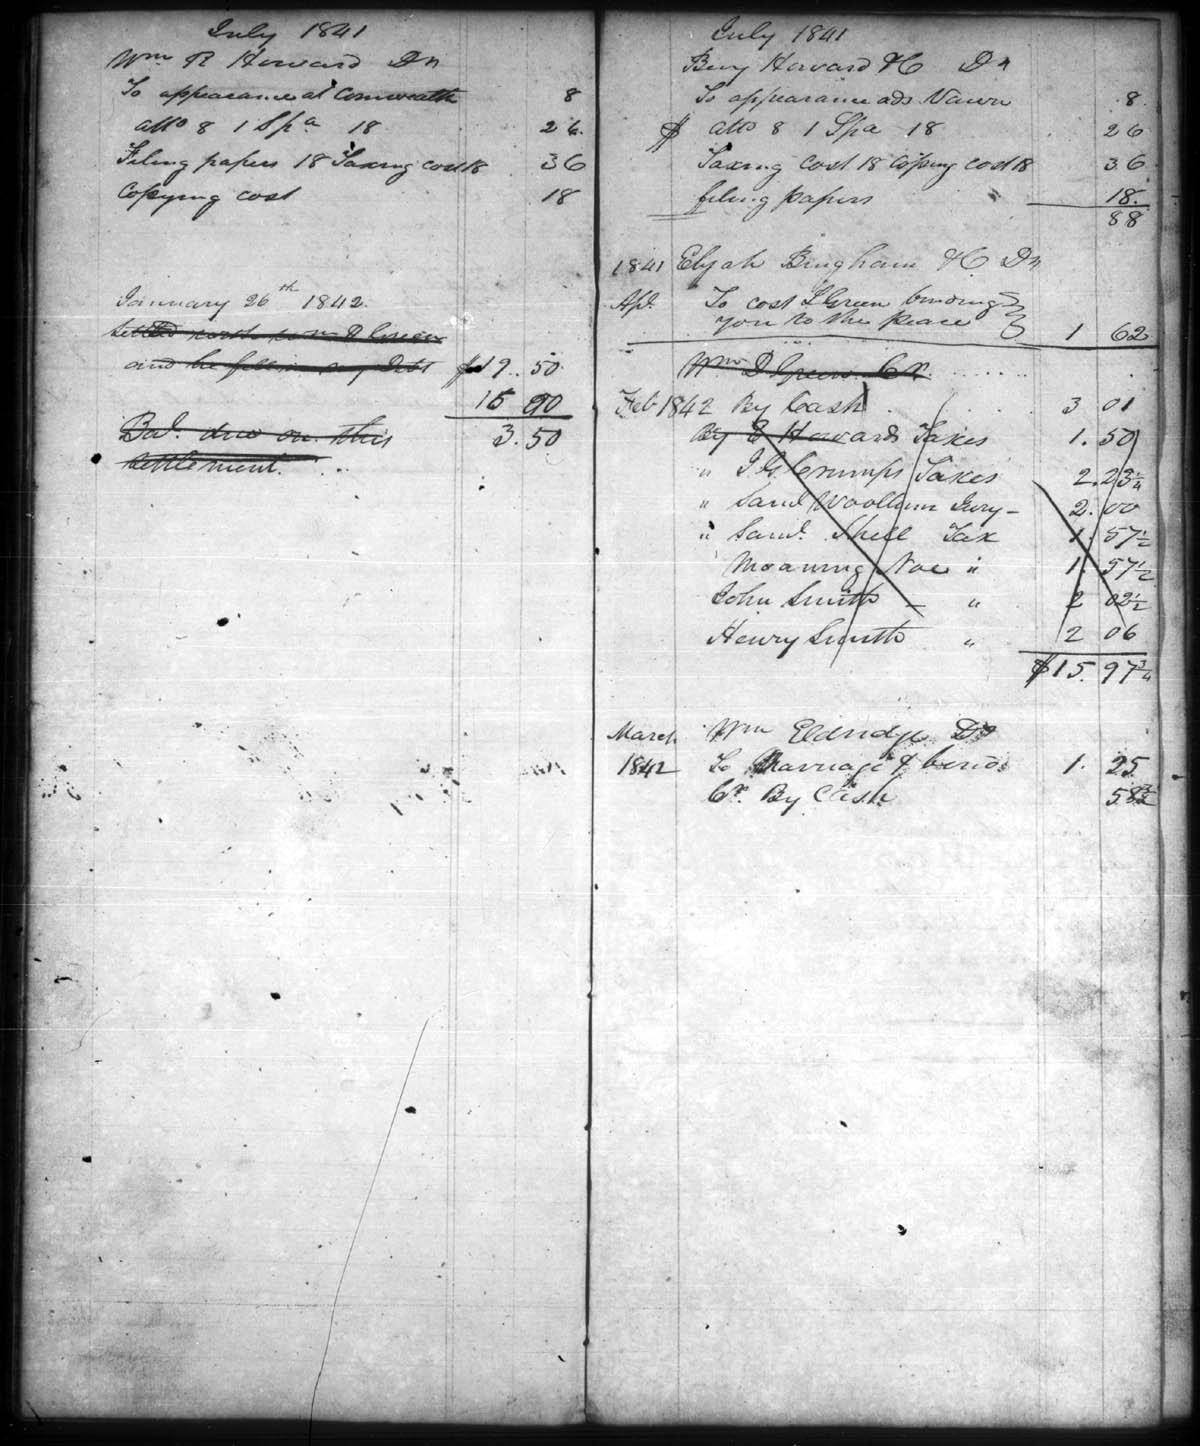 July 1841
Wm R Howard Dr
To appearance at Comweath 8
atto 8 1 Spa 18 26
Filing papers 18 Taxing cost 18 36
Copying cost 18
January 26th 1842.
Settled with Wm D Green
and he fell in my Debt $19.50
15 90
Bal. due on this 3.50
settlement.
July 1841
Benj Howard &C Dr
To appearance ads 8
$ atto 8 1 Spa 18 26
Taxing cost 18 Copying cost 18 36
filing papers 18.
88
1841 Elijah Bingham &C Dr
Apl. To cost L Green binding
you to the peace 1 62
Wm D Green Cr.
Feb 1842 By Cash 3 01
By E Howards Taxes 1.50
" J G Crumps Taxes 2.23 1/4
" Saml Woollum Jury - 2.00
" Saml. Shell Tax 1.57 1/2
Moaning Noe " 1.57 1/2
John Smith - " 2 02 1/2
Henry Smith " 2 06
$15.97 3/4
March Wm Eldridge Dr
1842 To Marriage & bond 1.25
Cr. By Cash